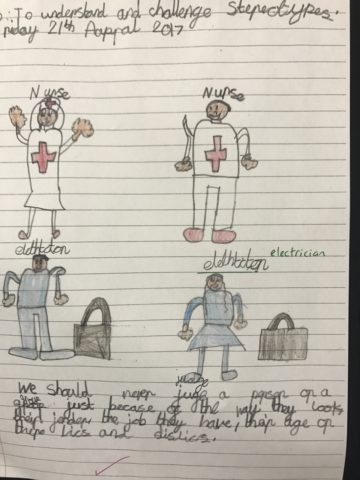 : To understand and challenge Stereotypes.
Friday 21th Aappral 2017
Nurse
Nurse
elethtoton
elethtoton electrician
we should never judg a person or a
just becase of the way they looks
their jender the job they have, their age or
there lics and dislics.